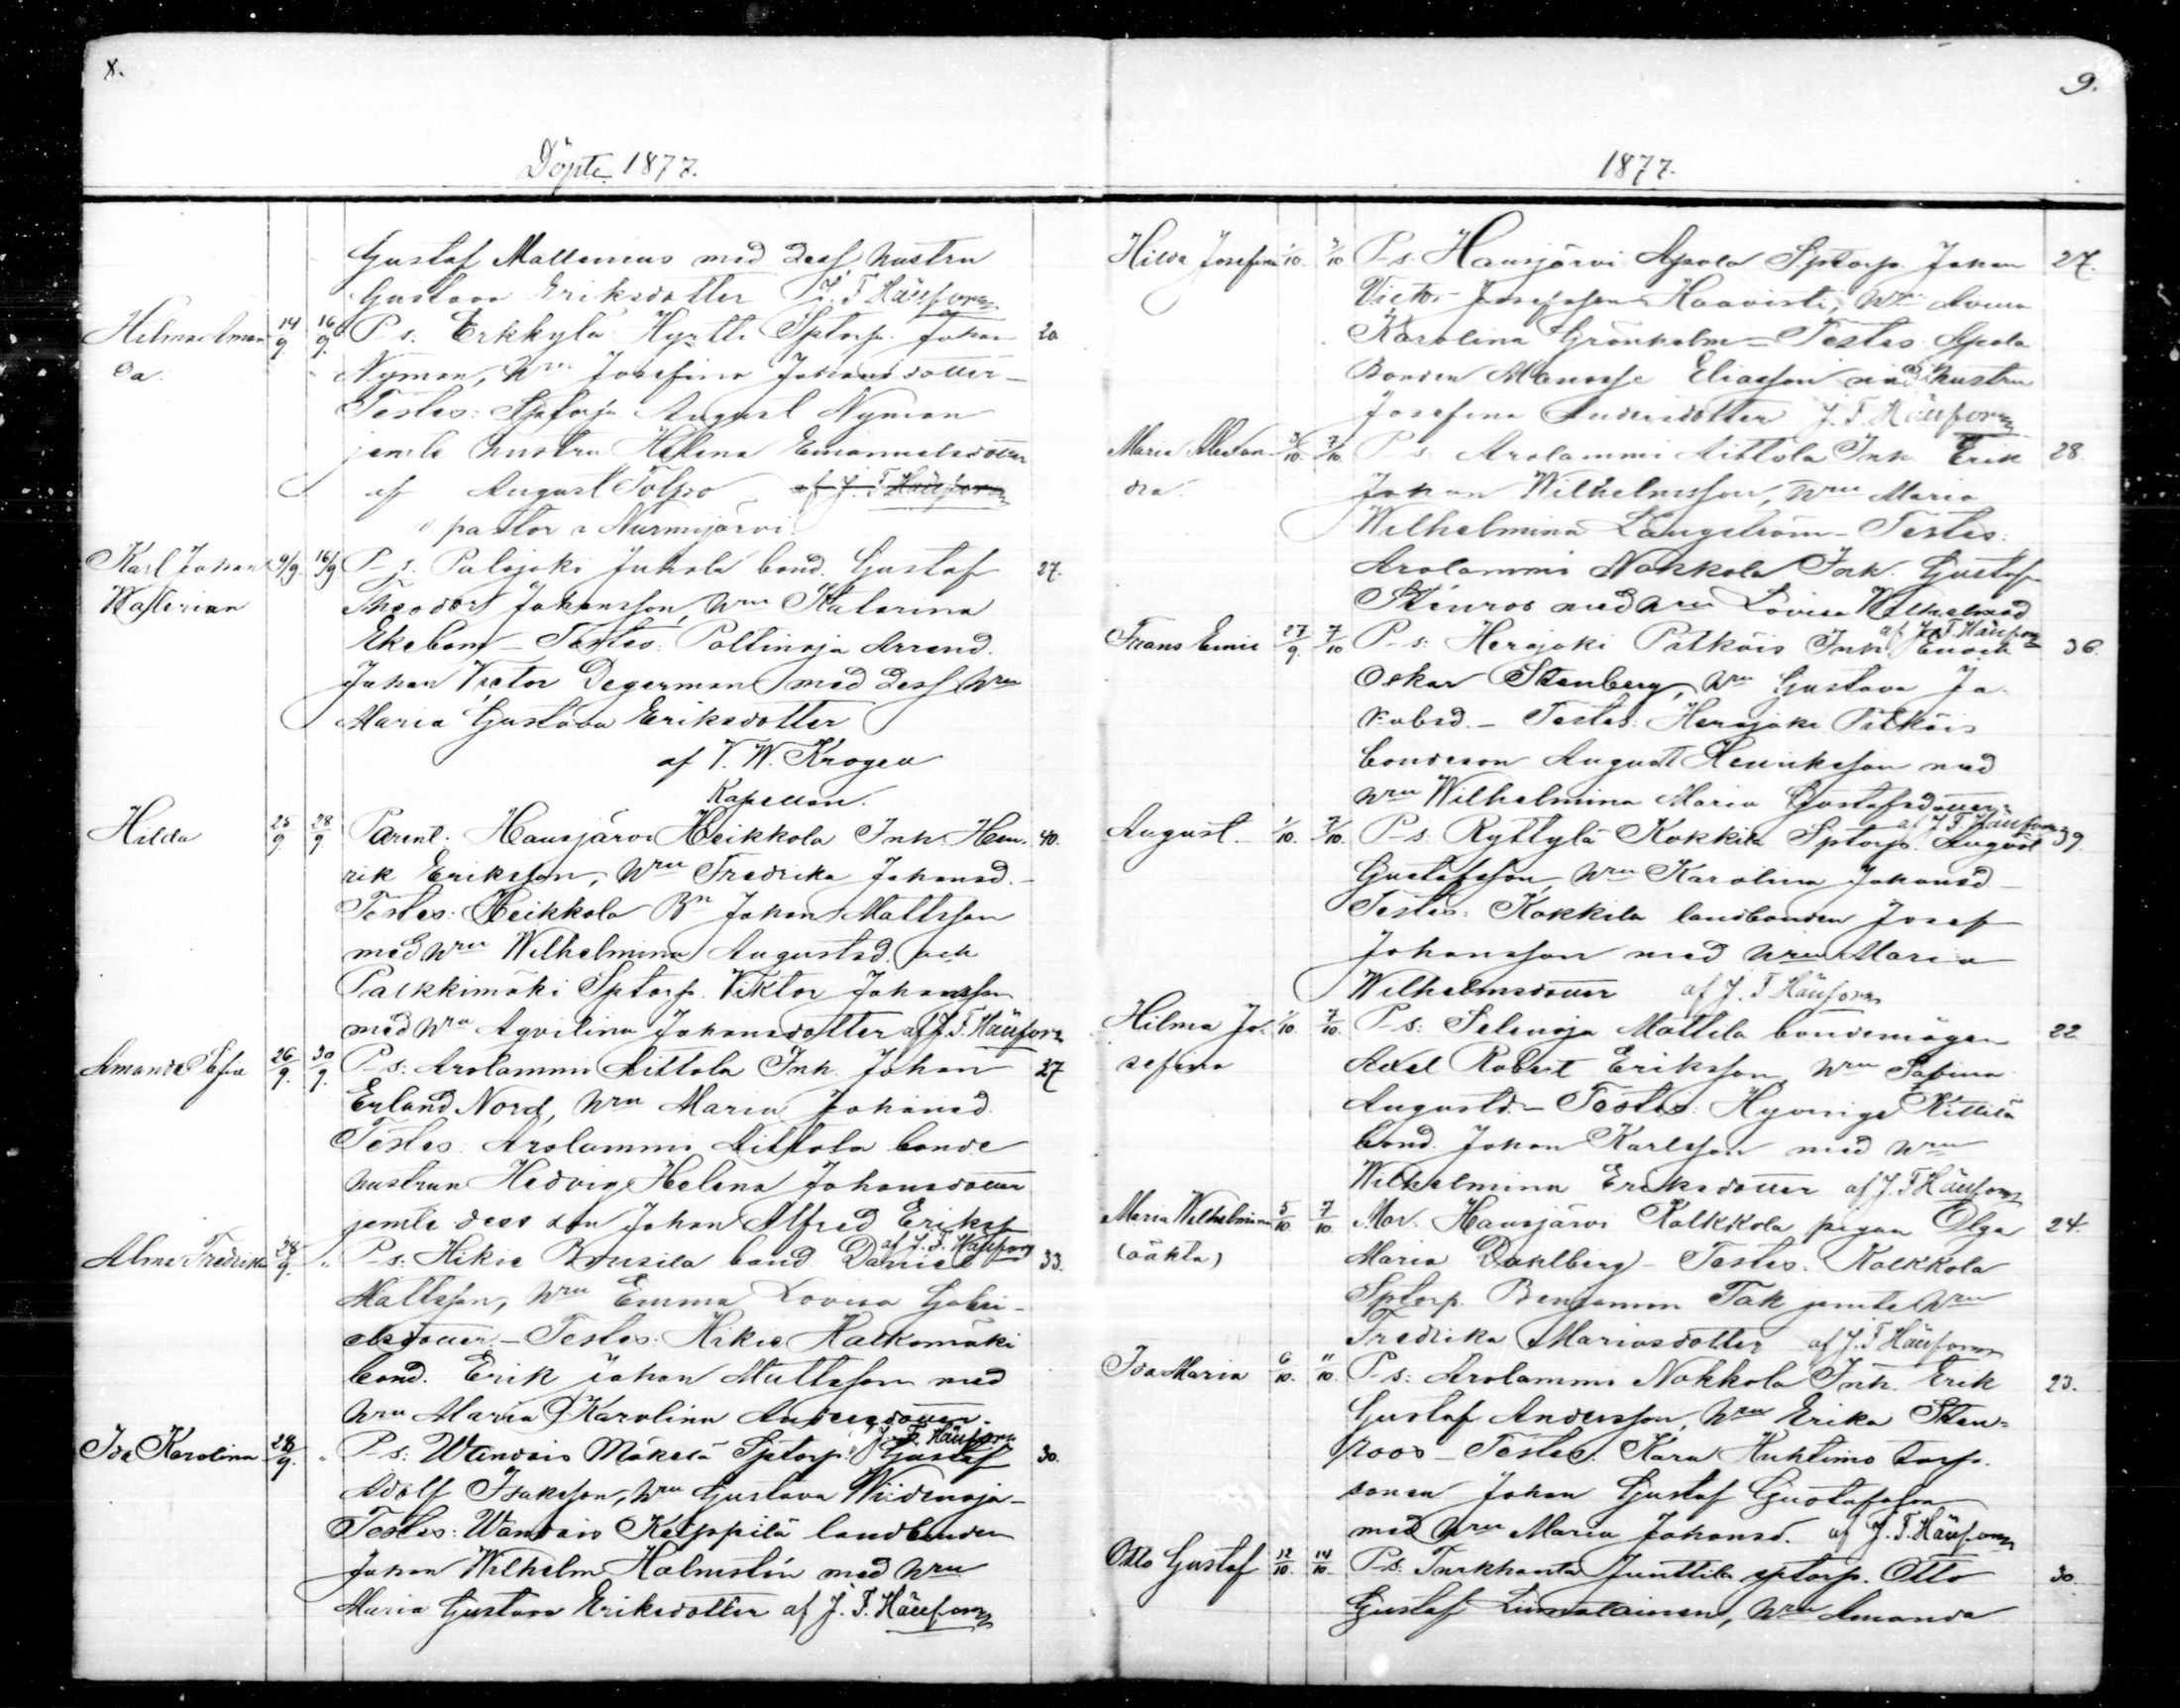 8.
Döpte 1877.
Gustaf Mallenius med dess hustru
Gustava Eriksdotter J. F. Häufom
Helma Aman- 14/9 16/9 P-s: Erkkylä Hyrtti Sptorp. Johan 20
da. Nyman, hru Josefina Johansdotter -
Testes: Sptorp August Nyman
jemte hustru Helena Emanuelsdotter
af August Tolpo af J. F. Häufom
pastor i Nurmijärvi
Karl Johan 9/9. 16/9 P-s: Palojoki Juhola bond. Gustaf 27.
Theodor Johansson, hru Katarina
Ekebom - Testes: Paltinoja Arrend.
Johan Victor Degerman med dess hru
Maria Gustava Eriksdotter
af V. W. Krogen
Kapellan.
Hilda 25/9 28/9 Parent. Hausjärvi Heikkola Inh. Hen- 40.
rik Eriksson, hru Fredrika Johansd. -
Testes: Heikkola Bn Johan Mattsson
med hru Wilhelmina Augustsd. och
Palkkimäki Sptorp. Viktor Johansson
med hru Aqvilina Johansdotter af J. F. Häufom
Amanda Sofia 26/9. 30/9. P-s: Arolammi Aittola Inh. Johan 27
Erland Nord, hru Maria Johansd.
Testes Arolammi Aittola bonde
hustrun Hedvig Helena Johansdotter
jemte dess son Johan Alfred Eriksson
af J. F. Häufom
Alma Fredrika 28/9. " P-s: Hikie Brusila bond Daniel 33.
Mattsson, hru Emma Lovisa Gabri-
elsdotter. - Testes: Hikie Kalkomäki
bond. Erik Johan Mattsson med
hru Maria Karolina Andersdotter.
J. F. Häufom
Ida Karolina 28/9. " P-s: Wandais Mäkelä Sptorp. Gustaf 30.
Adolf Isaksson, hru Gustava Wiidenoja -
Testes: Wandais Keippilä landbonden
Johan Wilhelm Holmstén med hru
Maria Gustava Eriksdotter af J. F. Häufom
9.
1877.
Hilda Josefina 1/10. P-s. Hausjärvi Apola Sptorp. Johan 27.
Victor Josefsson Haavisti, hru Anna
Karolina Grönholm - Testes Apola
Bonden Manasse Eliasson med hustru
Josefina Andersdotter J. F. Häufom
Maria Alexan- 3/10. 7/10. P-s. Arolammi Aittola Inh. Erik 28.
dra. Johan Wilhelmsson, hru Maria
Wilhelmina Långström - Testes:
Arolammi Nokkola Inh. Gustaf
Stenroos med hru Lovisa Wilhelmsd
af J. F. Häufom
Frans Emil 27/9. 7/10 P-s: Herajoki Pitkäis Inh. Enoch 36.
Oskar Stenberg, hru Gustava Ja-
kobsd. - Testes: Herajoki Pitkäis
bondeson August Henriksson med
hru Wilhelmina Maria Gustafsdotter
af J. F. Häufom
August. 1/10. 7/10. P-s. Ryttylä Kokkila Sptorp. August 39
Gustafsson, hru Karolina Johansd -
Testes: Kokkila landbonden Josef
Johansson med hru Maria
Wilhelmsdotter af J. F. Häufom
Hilma Jo- 1/10. 7/10. P-s: Selenoja Mattila bondemågen 22
sefina Axel Robert Eriksson, hru Sabina
Augustd. - Testes: Hyvinge Kittilä
bond. Johan Karlsson med hru
Wilhelmina Eriksdotter af J. F. Häufom
Maria Wilhelmina 5/10. 7/10. Mor. Hausjärvi Kalkkola pigan Olga 24.
(oäkta) Maria Dahlberg - Testes. Kalkkola
Sptorp. Benjamin Tak jemte hru
Fredrika Mariasdotter af J. F. Häufom
Ida Maria 6/10. 11/10. P-s: Arolammi Nokkola Inh. Erik 23.
Gustaf Andersson, hru Erika Sten-
roos - Testes: Kara Huhtimo torp.
sonen Johan Gustaf Gustafsson
med hru Maria Johansd. af J. F. Häufom
Otto Gustaf 12/10. 14/10. P-s. Turkhauta Junttila sptorp. Otto 30.
Gustaf Liimatainen, hru Amanda